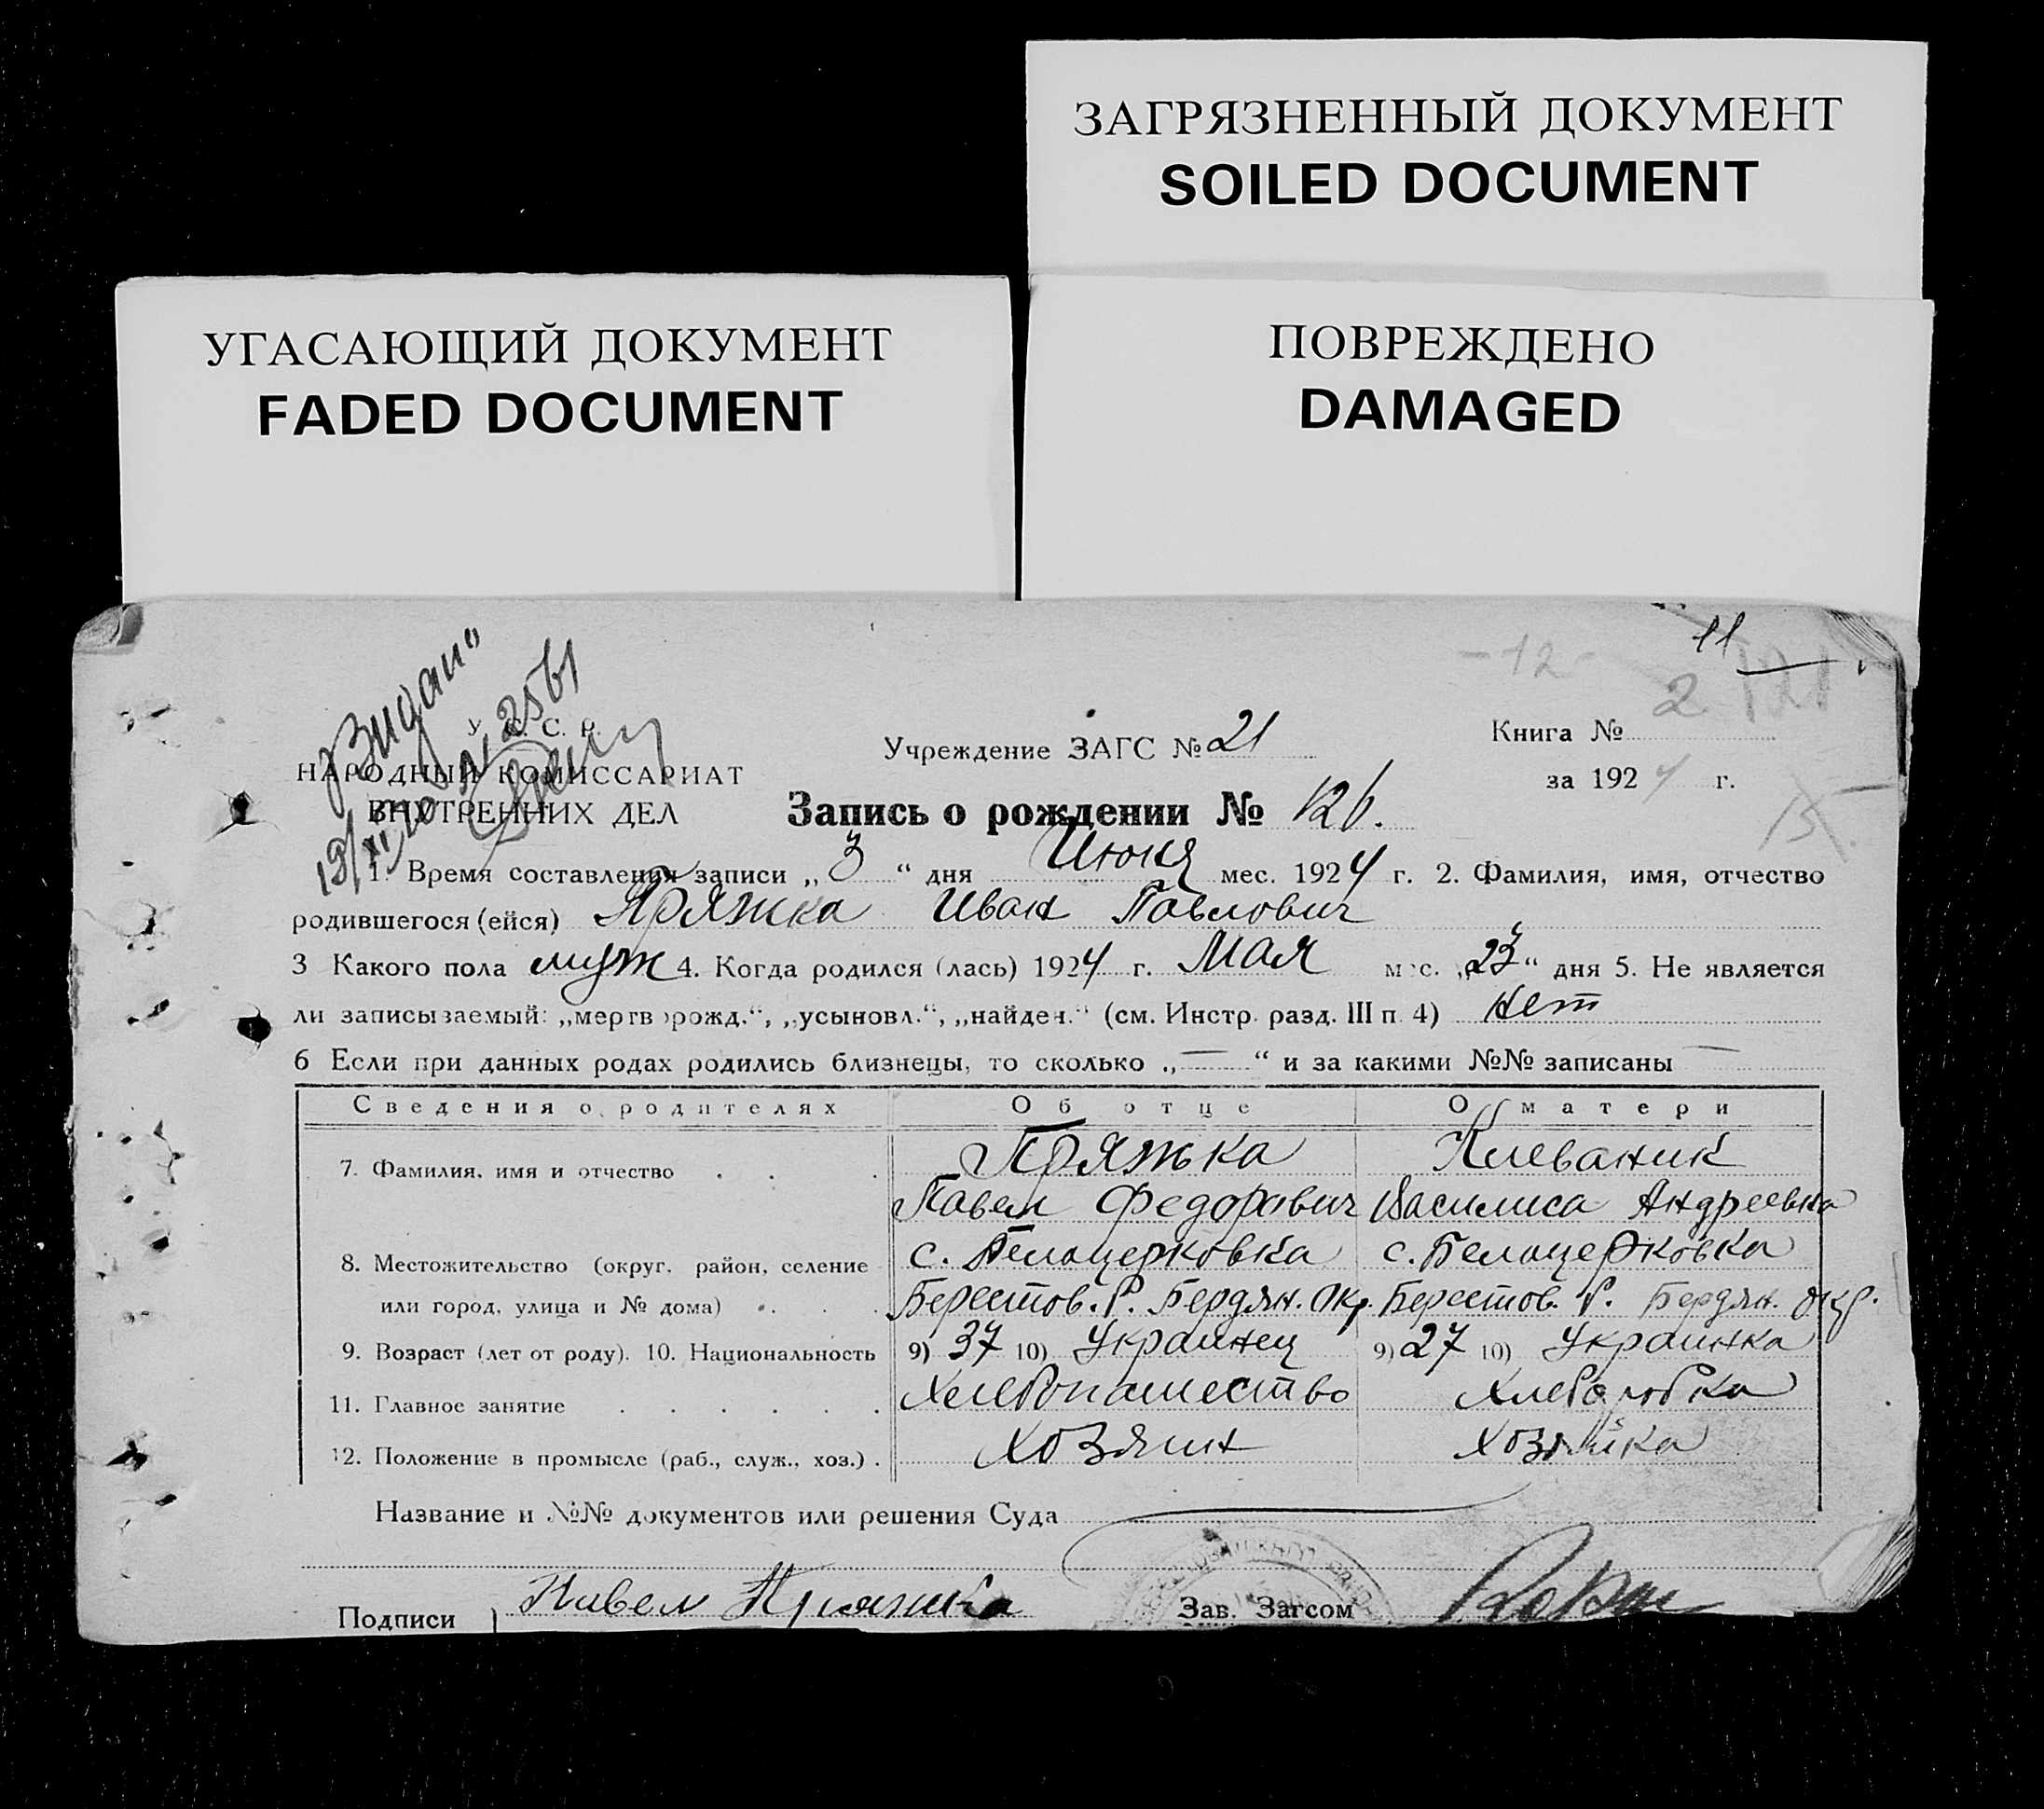 ЗАГРЯЗНЕННЫЙ ДОКУМЕНТ
SOILED DOCUMENT
УГАСАЮЩИЙ ДОКУМЕНТ
FADED DOCUMENT
ПОВРЕЖДЕНО
DAMAGED
11
- 12 -
2 121
"Видан"
У. С. С. Р.
НАРОДНЫЙ КОМИССАРИАТ
ВНУТРЕННИХ ДЕЛ
Учреждение ЗАГС № 21
Книга №
за 1924 г.
15
Запись о рождении № 126.
1. Время составления записи „3“ дня Июня мес. 1924 г. 2. Фамилия, имя, отчество
родившегося (ейся) Пряжка Иван Павлович
3 Какого пола муж 4. Когда родился (лась) 1924 г. Мая мес. „23“ дня 5. Не является
ли записываемый: „мертворожд.“, „усыновл.“, „найден.“ (см. Инстр. разд. III п. 4) нет
6 Если при данных родах родились близнецы, то сколько „—“ и за какими №№ записаны —
Сведения о родителях Об отце О матери
7. Фамилия, имя и отчество Пряжка Клеваник
Павел Федорович Василиса Андреевна
8. Местожительство (округ, район, селение с. Белоцерковка с. Белоцерковка
или город, улица и № дома) Берестов. Р. Бердян. Окр. Берестов. Р. Бердян. окр.
9. Возраст (лет от роду). 10. Национальность 9) 37 10) Украинец 9) 27 10) Украинка
11. Главное занятие Хлебопашество Хлеборобка
12. Положение в промысле (раб., служ., хоз.) Хозяин Хозяйка
Название и №№ документов или решения Суда
Подписи Павел Пряжка Зав. Загсом